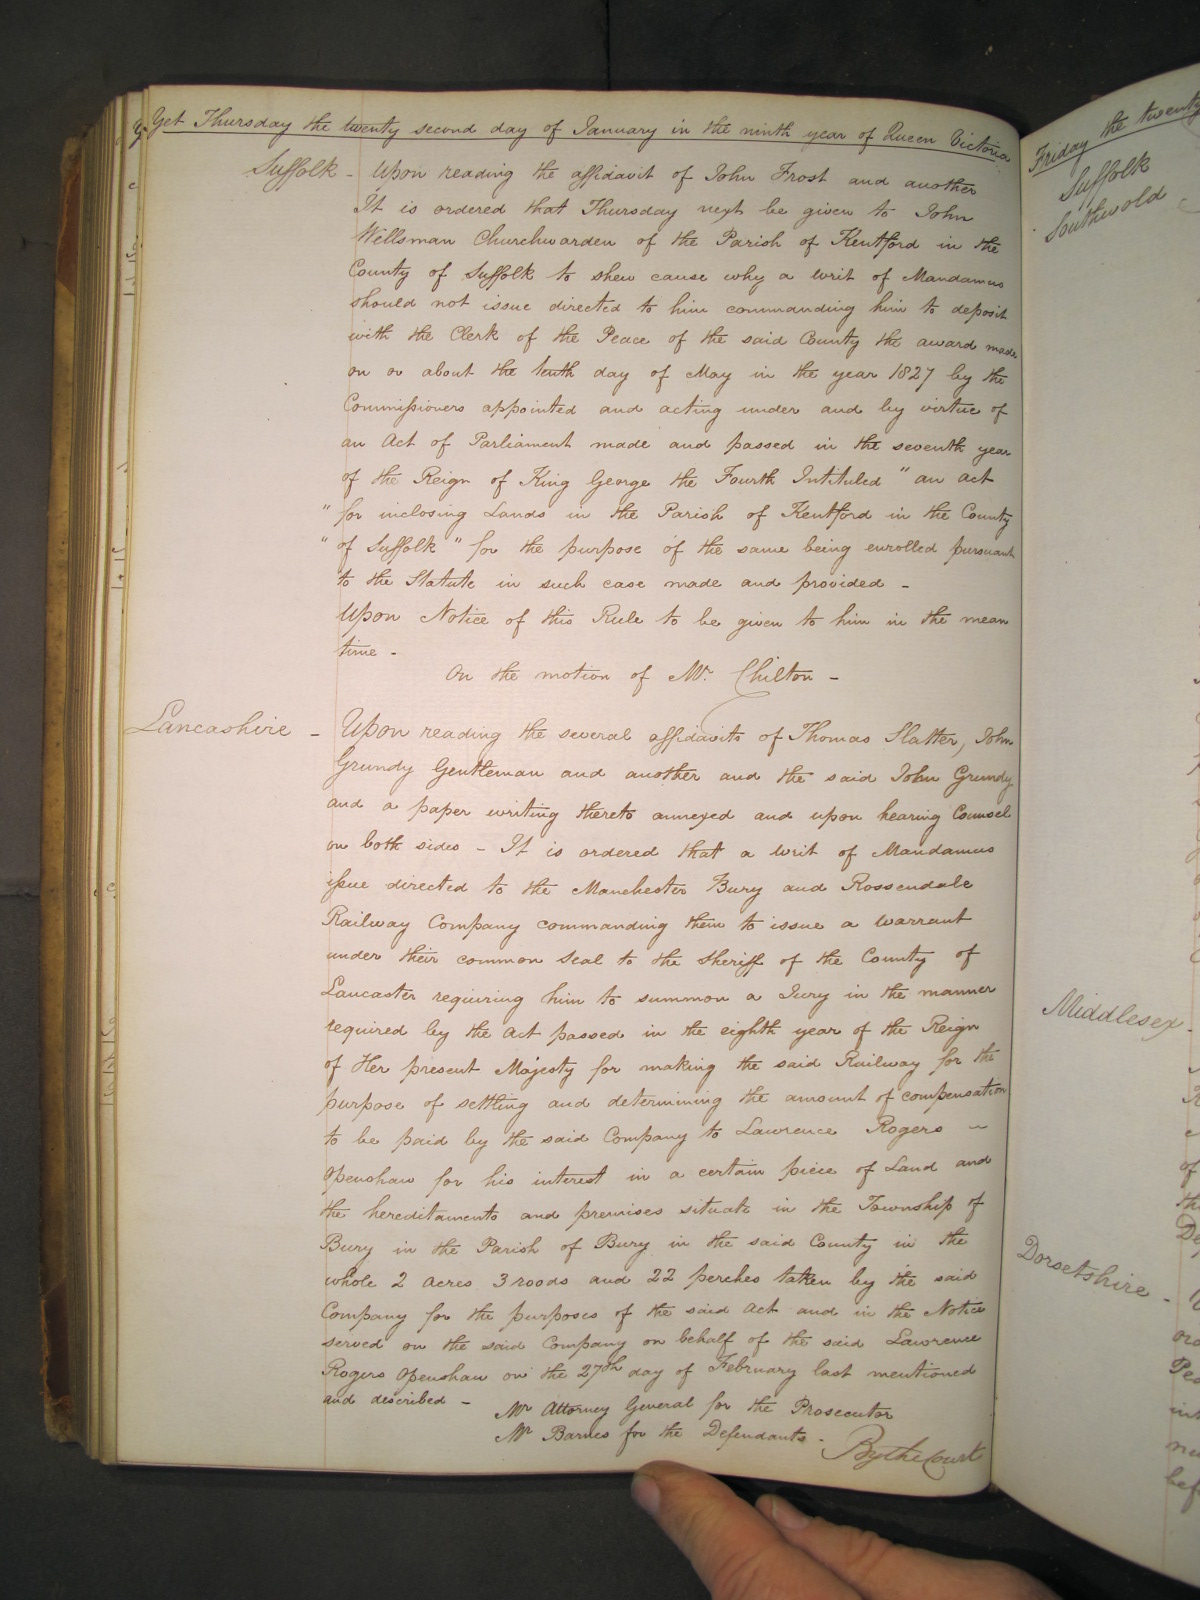 Yet Thursday the twenty second day of January in the ninth year of Queen Victoria
Suffolk - Upon reading the affidavit of John Frost and another
It is ordered that Thursday next be given to John
Wellsman Churchwarden of the Parish of Kentford in the
County of Suffolk to shew cause why a writ of Mandamus
should not issue directed to him commanding him to deposit
with the Clerk of the Peace of the said County the award made
on or about the tenth day of May in the year 1827 by the
Commissioners appointed and acting under and by virtue of
an Act of Parliament made and passed in the seventh year
of the Reign of King George the Fourth Intituled "an act
"for inclosing Lands in the Parish of Kentford in the County
"of Suffolk" for the purpose of the same being enrolled pursuant
to the Statute in such case made and provided -
Upon Notice of this Rule to be given to him in the mean
time -
On the motion of Mr. Chilton -
Lancashire - Upon reading the several affidavits of Thomas Slatter, John
Grundy Gentleman and another and the said John Grundy
and a paper writing thereto annexed and upon hearing Counsel
on both sides - It is ordered that a writ of Mandamus
issue directed to the Manchester Bury and Rossendale
Railway Company commanding them to issue a warrant
under their common seal to the Sheriff of the County of
Lancaster requiring him to summon a Jury in the manner
required by the act passed in the eighth year of the Reign
of Her present Majesty for making the said Railway for the
purpose of settling and determining the amount of compensation
to be paid by the said Company to Lawrence Rogers -
Openshaw for his interest in a certain piece of Land and
the hereditaments and premises situate in the Township of
Bury in the Parish of Bury in the said County in the
whole 2 acres 3 roods and 22 perches taken by the said
Company for the purposes of the said act and in the Notice
served on the said Company on behalf of the said Lawrence
Rogers Openshaw on the 27th day of February last mentioned
and described -
Mr Attorney General for the Prosecutor
Mr Barnes for the Defendants -
By the Court
Friday the twenty
Suffolk
Southwold
Middlesex -
Dorsetshire -